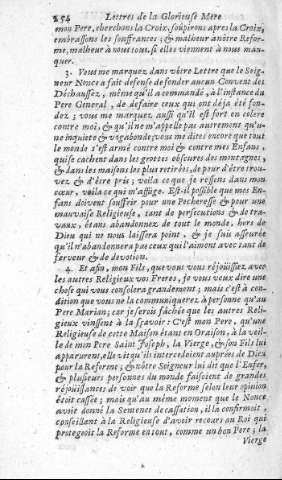 254 Lettres de la Glorieuse Mere
mon Pere, cherchons la Croix, soûpirons apres la Croix,
embrassons les souffrances; & malheur à nôtre Refor-
me, malheur à nous tous, si elles viennent à nous man-
quer.
3. Vous me marquez dans vôtre Lettre que le Seig-
neur Nonce a fait defense de fonder aucun Convent des
Déchaussez, même qu'il a commandé, à l'instance du
Pere General, de defaire ceux qui ont déja été fon-
dez; vous me marquez aussi qu'il est fort en colere
contre moi, & qu'il ne m'appelle pas autrement qu'u-
ne inquiete & vagabonde; vous me dites encore que tout
le monde s'est armé contre moi & contre mes Enfans,
qui se cachent dans les grottes obscures des montagnes,
& dans les maisons les plus retirées, de peur d'être trou-
vez & d'être pris; voila ce que je ressens dans mon
cœur, voila ce qui m'afflige. Est-il possible que mes En-
fans doivent souffrir pour une Pecheresse & pour une
mauvaise Religieuse, tant de persecutions & de tra-
vaux, étans abandonnez de tout le monde, hors de
Dieu qui ne nous laissera point, & je suis assurée
qu'il n'abandonnera pas ceux qui l'aiment avec tant de
ferveur & de devotion.
4. Et afin, mon Fils, que vous vous réjoüissiez avec
les autres Religieux vos Freres, je vous veux dire une
chose qui vous consolera grandement; mais c'est à con-
dition que vous ne la communiquerez à personne qu'au
Pere Marian; car je serois fâchée que les autres Reli-
gieux vinssent à la sçavoir: C'est mon Pere, qu'une
Religieuse de cette Maison étant en Oraison, à la veil-
le de mon Pere Saint Joseph, la Vierge, & son Fils lui
apparurent, elle vit qu'ils intercedoient auprés de Dieu
pour la Reforme; & nôtre Seigneur lui dit que l'Enfer,
& plusieurs personnes du monde faisoient de grandes
réjoüissances de voir que la Reforme selon leur opinion
étoit cassée; mais qu'au même moment que le Nonce
avoit donné la Sentence de cassation, il la confirmoit,
conseillant à la Religieuse d'avoir recours au Roi qui
protegeoit la Reforme en tout, comme un bon Pere; la
Vierge